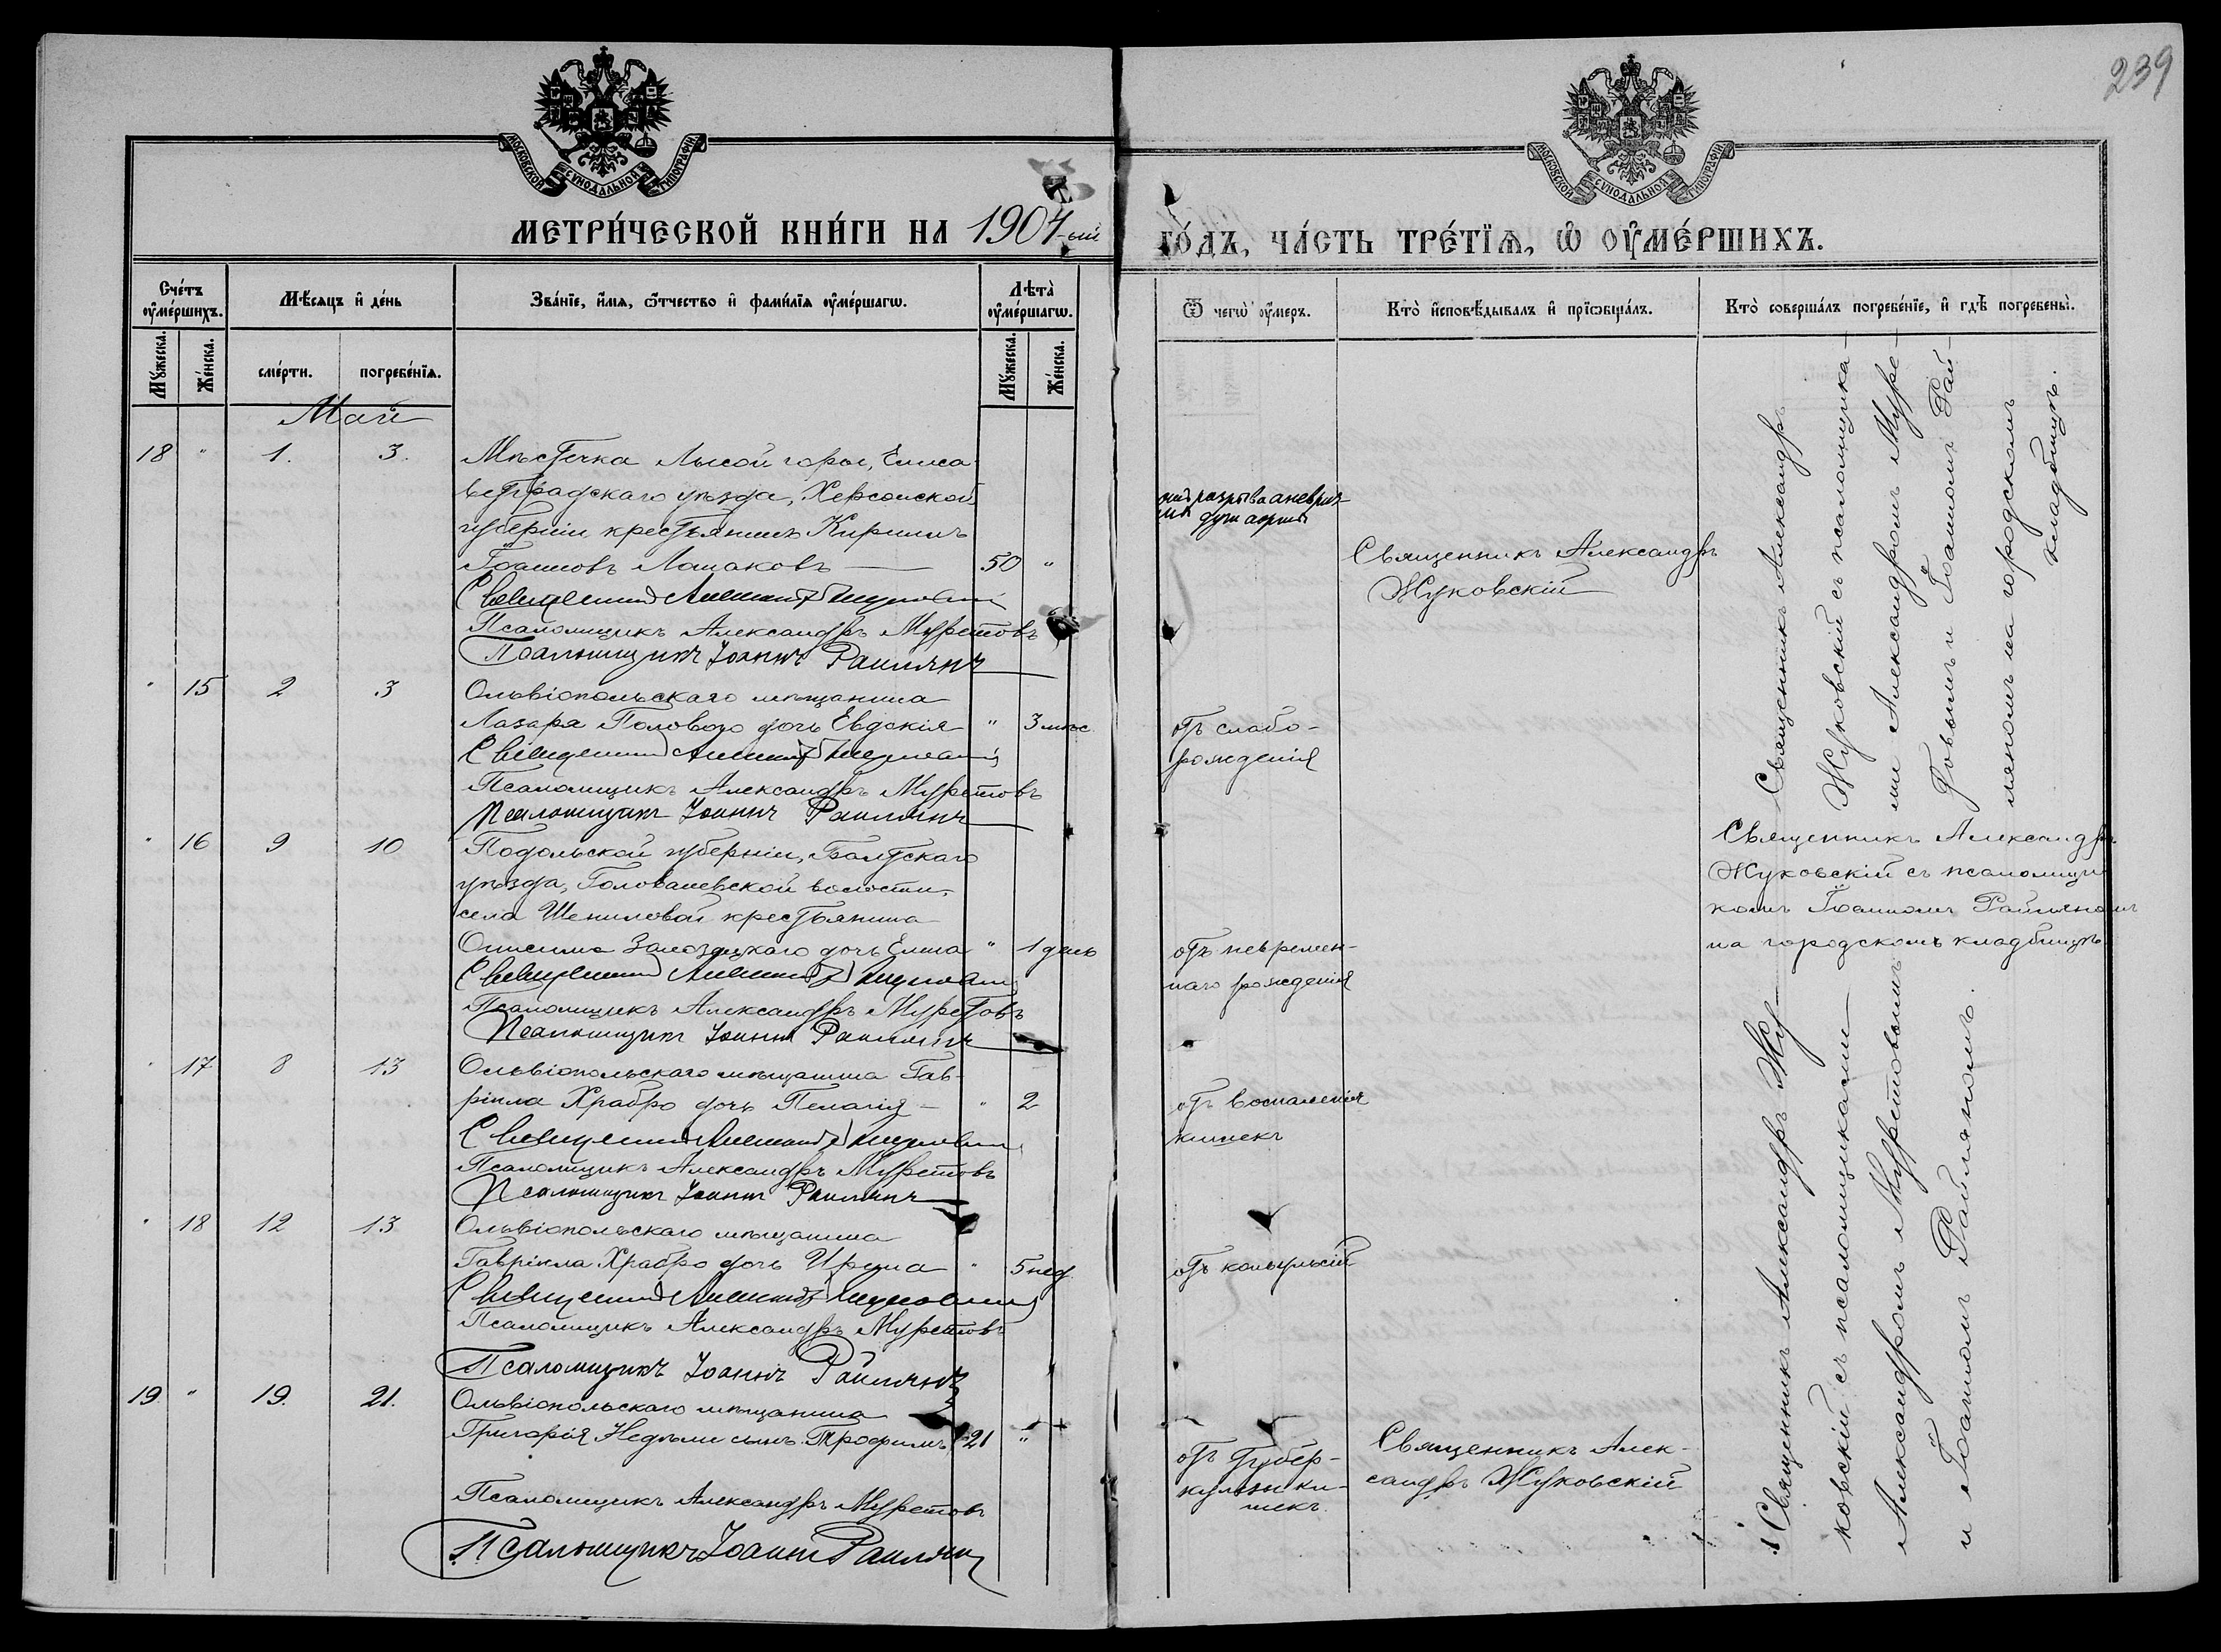 239
МОСКОВСКОЙ СѴНОДАЛЬНОЙ ТИПОГРАФІИ
МОСКОВСКОЙ СѴНОДАЛЬНОЙ ТИПОГРАФІИ
МЕТРИ́ЧЕСКОЙ КНИ́ГИ НА 1904-ый
ГО́ДЪ, ЧА́СТЬ ТРЕ́ТІѦ, Ѡ ОУ҆МЕ́РШИХЪ.
Сче́тъ оу҆ме́ршихъ.
Му́жеска.
Же́нска.
Мѣ́сяцъ и҆ де́нь
сме́рти.
погребе́нїѧ.
Зва́нїе, и҆́мѧ, ѻ҆́тчество и҆ фами́лїѧ оу҆ме́ршагѡ.
Лѣ́та̀ оу҆ме́ршагѡ.
Му́жеска.
Же́нска.
Ѿ чегѡ̀ оу҆́меръ.
Кто̀ и҆сповѣ́дывалъ и҆ прїѡбща́лъ.
Кто̀ соверша́лъ погребе́нїе, и҆ гдѣ̀ погребены̀.
Май
18 " 1. 3.
Мѣстечка Лысой горы, Елиса-
ветградскаго уѣзда, Херсонской
губерніи крестьянинъ Кириллъ
Іоанновъ Лошаковъ — 50 "
Священникъ Александръ Жуковскій
Псаломщикъ Александръ Муретовъ
Псаломщикъ Іоаннъ Райлянъ
отъ разрыва аневриз-
мы дуги аорты
Священникъ Александръ
Жуковскій
Священникъ Александръ
Жуковскій съ псаломщика-
ми Александромъ Муре-
товымъ и Іоанномъ Рай-
ляномъ на городскомъ
кладбищѣ.
" 15 2 3
Ольвіопольскаго мѣщанина
Лазаря Половаго дочь Евдокія " 3 мѣс.
Священникъ Александръ Жуковскій
Псаломщикъ Александръ Муретовъ
Псаломщикъ Іоаннъ Райлянъ
отъ слабо-
рожденія
" 16 9 10
Подольской губерніи, Балтскаго
уѣзда, Голованевской волости,
села Шепиловой крестьянина
Онисима дочь Елена " 1 день
Священникъ Александръ Жуковскій
Псаломщикъ Александръ Муретовъ
Псаломщикъ Іоаннъ Райлянъ
отъ неврeмен-
наго рожденія
Священникъ Александръ
Жуковскій съ псаломщи-
комъ Іоанномъ Райляномъ
на городскомъ кладбищѣ.
" 17 8 13
Ольвіопольскаго мѣщанина Гав-
ріила Храбро дочь Пелагія — " 2
Священникъ Александръ Жуковскій
Псаломщикъ Александръ Муретовъ
Псаломщикъ Іоаннъ Райлянъ
отъ воспаленія
кишекъ
" 18 12 13
Ольвіопольскаго мѣщанина
Гавріила Храбро дочь Ирина " 5 нед.
Священникъ Александръ Жуковскій
Псаломщикъ Александръ Муретовъ
Псаломщикъ Іоаннъ Райлянъ
отъ конвульсій
19. " 19. 21.
Ольвіопольскаго мѣщанина
Григорія Недѣли сынъ Трофимъ 21 "
Псаломщикъ Александръ Муретовъ
Псаломщикъ Іоаннъ Райлянъ
отъ тубер-
кулеза ки-
шекъ.
Священникъ Алек-
сандръ Жуковскій
Священникъ Александръ Жу-
ковскій съ псаломщиками
Александромъ Муретовымъ
и Іоанномъ Райляномъ.